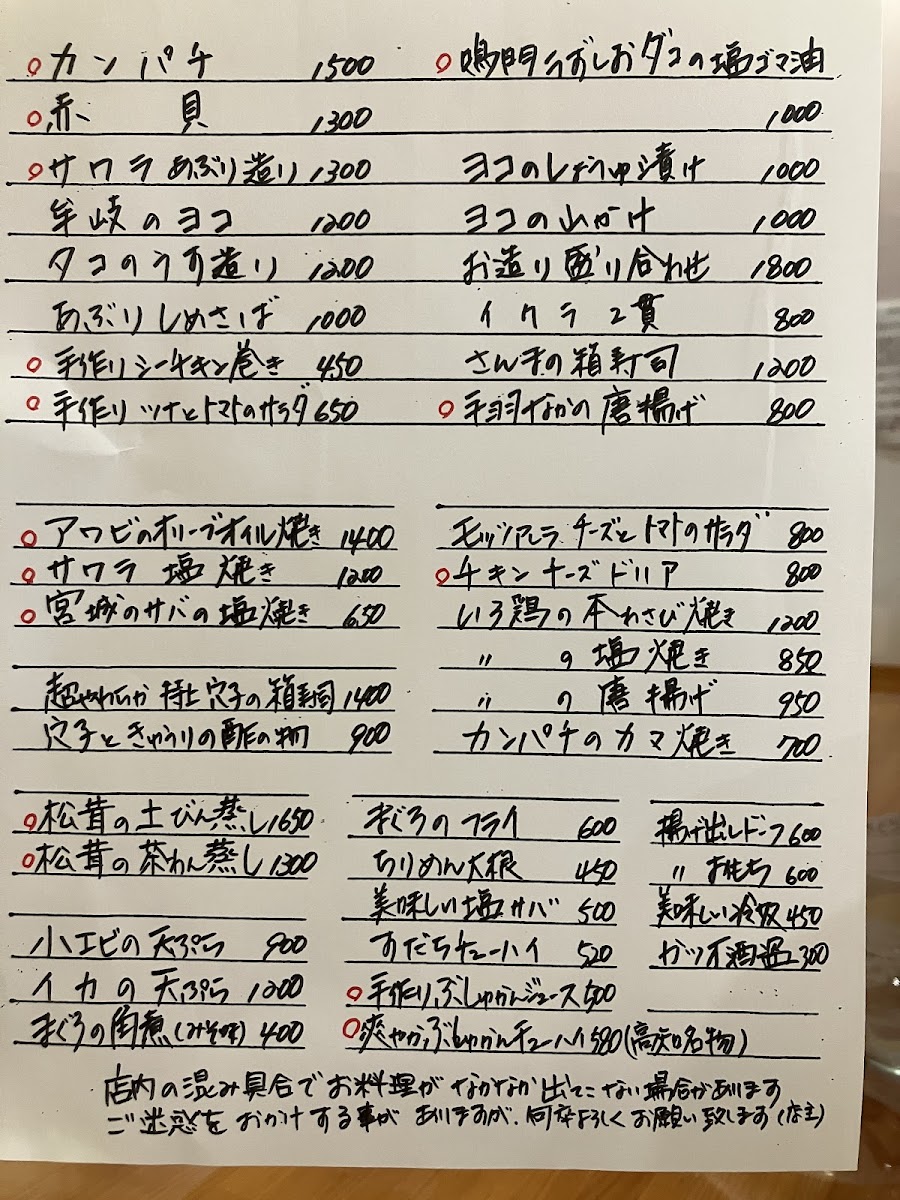 ○カンパチ 1500
○赤貝 1300
○サワラあぶり造り 1300
牟岐のヨコ 1200
タコのうす造り 1200
あぶりしめさば 1000
○手作りシーチキン巻き 450
○手作りツナとトマトのサラダ 650
○鳴門うずしおダコの塩ゴマ油
1000
ヨコのしょうゆ漬け 1000
ヨコの山かけ 1000
お造り盛り合わせ 1800
イクラ2貫 800
さんまの箱寿司 1200
○手羽なかの唐揚げ 800
○アワビのオリーブオイル焼き 1400
○サワラ塩焼き 1200
○宮城のサバの塩焼き 650
超やわらか特上穴子の箱寿司 1400
穴子ときゅうりの酢の物 900
モッツアレラチーズとトマトのサラダ 800
○チキンチーズドリア 800
いろ鶏の本わさび焼き 1200
〃の塩焼き 850
〃の唐揚げ 950
カンパチのカマ焼き 700
○松茸の土びん蒸し 1650
○松茸の茶わん蒸し 1300
小エビの天ぷら 900
イカの天ぷら 1200
まぐろの角煮(みそ味) 400
まぐろのフライ 600
ちりめん大根 450
美味しい塩サバ 500
すだちチューハイ 520
○手作りぶしゅかんジュース 500
○爽やかぶしゅかんチューハイ 580(高知名物)
揚げ出しドーフ 600
〃お餅 600
美味しい冷奴 450
カツオ酒盗 300
店内の混み具合でお料理がなかなか出てこない場合があります
ご迷惑をおかけする事がありますが、何卒よろしくお願い致します(店主)